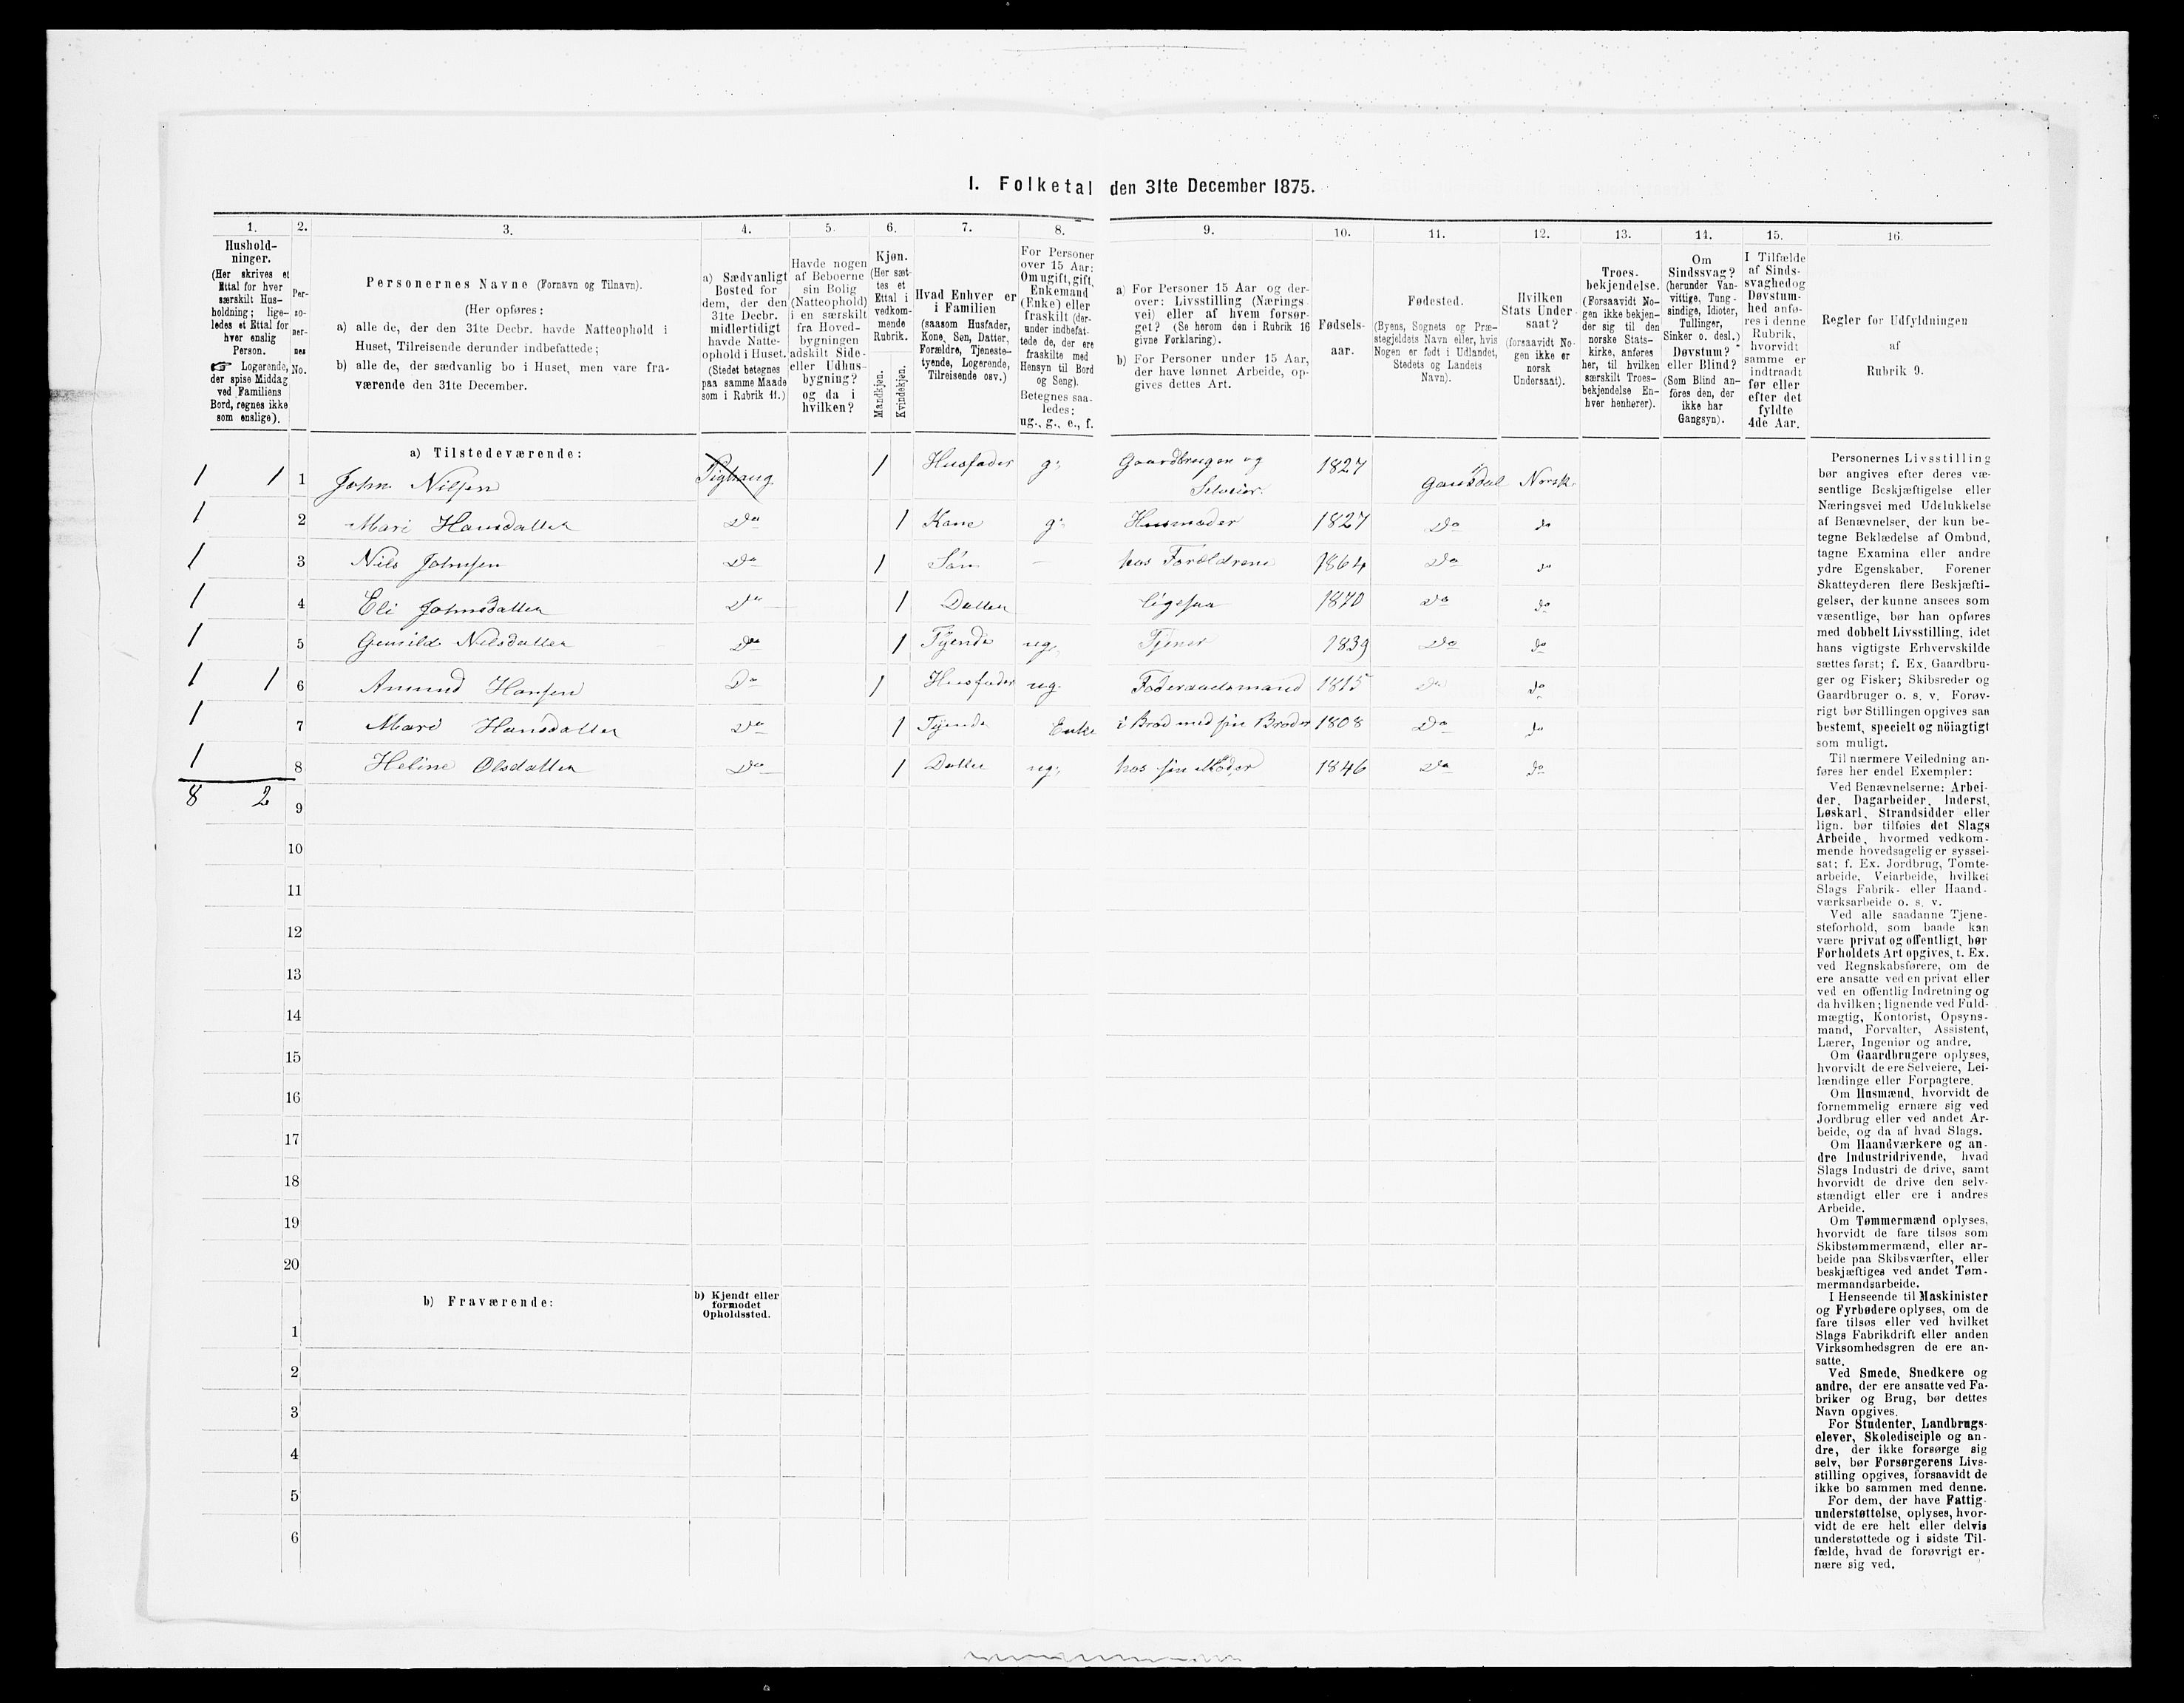 I. Folketal den 31te December 1875.
1.
Hushold-
ninger.
(Her skrives et
Ettal for hver
særskilt Hus-
holdning; lige-
ledes et Ettal for
hver enslig
Person.
☞ Logerende,
der spise Middag
ved Familiens
Bord, regnes ikke
som enslige).
2.
Per-
so-
ner-
nes
No.
3.
Personernes Navne (Fornavn og Tilnavn).
(Her opføres:
a) alle de, der den 31te Decbr. havde Natteophold i
Huset, Tilreisende derunder indbefattede;
b) alle de, der sædvanlig bo i Huset, men vare fra-
værende den 31te December.
4.
a) Sædvanligt
Bosted for
dem, der den
31te Decbr.
midlertidigt
havde Natte-
ophold i Huset.
(Stedet betegnes
paa samme Maade
som i Rubrik 11.)
5.
Havde nogen
af Beboerne
sin Bolig
(Natteophold)
i en særskilt
fra Hoved-
bygningen
adskilt Side-
eller Udhus-
bygning?
og da i
hvilken?
6.
Kjøn.
(Her sæt-
tes et
Ettal i
vedkom-
mende
Rubrik.
Mandkjøn.
Kvindekjøn.
7.
Hvad Enhver er
i Familien
(saasom Husfader,
Kone, Søn, Datter,
Forældre, Tjeneste-
tyende, Logerende,
Tilreisende osv.)
8.
For Personer
over 15 Aar:
Om ugift, gift,
Enkemand
(Enke) eller
fraskilt (der-
under indbefat-
tede de, der ere
fraskilte med
Hensyn til Bord
og Seng).
Betegnes saa-
ledes:
ug., g., e., f.
9.
a) For Personer 15 Aar og der-
over: Livsstilling (Nærings-
vei) eller af hvem forsør-
get? (Se herom den i Rubrik 16
givne Forklaring).
b) For Personer under 15 Aar,
der have lønnet Arbeide, op-
gives dettes Art.
10.
Fødsels-
aar.
11.
Fødested.
(Byens, Sognets og Præ-
stegjeldets Navn eller, hvis
Nogen er født i Udlandet,
Stedets og Landets
Navn).
12.
Hvilken
Stats Under-
saat?
(forsaavidt No-
gen ikke er
norsk
Undersaat).
13.
Troes-
bekjendelse.
(Forsaavidt No-
gen ikke bekjen-
der sig til den
norske Stats-
kirke, anføres
her, til hvilken
særskilt Troes-
bekjendelse En-
hver henhører).
14.
Om
Sindssvag?
(herunder Van-
vittige, Tung-
sindige, Idioter,
Tullinger,
Sinker o. desl.)
Døvstum?
eller Blind?
(Som Blind an-
føres den, der
ikke har
Gangsyn).
15.
I Tilfælde
af Sinds-
svaghed og
Døvstum-
hed anfø-
res i denne
Rubrik,
hvorvidt
samme er
indtraadt
før eller
efter det
fyldte
4de Aar.
16.
Regler for Udfyldningen
af
Rubrik 9.
a) Tilstedeværende:
1 1 1 John Nilsen Pighaug 1 Husfader g: Gaardbruger og Selveier. 1827 Gausdal Norsk.
1 2 Mari Hansdatter Do 1 Kone g: Husmoder 1827 Do do
1 3 Nils Johnsen Do 1 Søn – hos Forældrene 1864 Do do
1 4 Eli Johnsdatter Do 1 Datter ligesaa 1870 Do do
1 5 Gunild Nilsdatter Do 1 Tyende ug. Tjener 1839 Do do
1 1 6 Amund Hansen Do 1 Husfader ug. Føderaadsmand 1815 Do do
1 7 Mari Hansdatter Do 1 Tyende Enke i Brød med sin Broder 1808 Do do
1 8 Heline Olsdatter Do 1 Datter ug: hos sin Moder 1846 Do do
8 2 9
10
11
12
13
14
15
16
17
18
19
20
b) Fraværende:
b) Kjendt eller
formodet
Opholdssted.
1
2
3
4
5
6
Personernes Livsstilling
bør angives efter deres væ-
sentlige Beskjæftigelse eller
Næringsvei med Udelukkelse
af Benævnelser, der kun be-
tegne Beklædelse af Ombud,
tagne Examina eller andre
ydre Egenskaber. Forener
Skatteyderen flere Beskjæfti-
gelser, der kunne ansees som
væsentlige, bør han opføres
med dobbelt Livsstilling, idet
hans vigtigste Erhvervskilde
sættes først; f. Ex. Gaardbru-
ger og Fisker; Skibsreder og
Gaardbruger o. s. v. Forøv-
rigt bør Stillingen opgives saa
bestemt, specielt og nöiagtigt
som muligt.
Til nærmere Veiledning an-
føres her endel Exempler:
Ved Benævnelserne: Arbei-
der, Dagarbeider, Inderst,
Løskarl, Strandsidder eller
lign. bør tilføies det Slags
Arbeide, hvormed vedkom-
mende hovedsagelig er syssel-
sat; f. Ex. Jordbrug, Tomte-
arbeide, Veiarbeide, hvilket
Slags Fabrik- eller Haand-
værksarbeide o. s. v.
Ved alle saadanne Tjene-
steforhold, som baade kan
være privat og offentligt, bør
Forholdets Art opgives, t. Ex.
ved Regnskabsførere, om de
ere ansatte ved en privat eller
ved en offentlig Indretning og
da hvilken; lignende ved Fuld-
mægtig, Kontorist, Opsyns-
mand, Forvalter, Assistent,
Lærer, Ingeniør og andre.
Om Gaardbrugere oplyses,
hvorvidt de ere Selveiere, Lei-
lændinge eller Forpagtere.
Om Husmænd, hvorvidt de
fornemmelig ernære sig ved
Jordbrug eller ved andet Ar-
beide, og da af hvad Slags.
Om Haandværkere og an-
dre Industridrivende, hvad
Slags Industri de drive, samt
hvorvidt de drive den selv-
stændigt eller ere i andres
Arbeide.
Om Tømmermænd oplyses,
hvorvidt de fare tilsøs som
Skibstømmermænd, eller ar-
beide paa Skibsværfter, eller
beskjæftiges ved andet Tøm-
mermandsarbeide.
I Henseende til Maskinister
og Fyrbødere oplyses, om de
fare tilsøs eller ved hvilket
Slags Fabrikdrift eller anden
Virksomhedsgren de ere an-
satte.
Ved Smede, Snedkere og
andre, der ere ansatte ved Fa-
briker og Brug, bør dettes
Navn opgives.
For Studenter, Landbrugs-
elever, Skoledisciple og an-
dre, der ikke forsørge sig
selv, bør Forsørgerens Livs-
stilling opgives, forsaavidt de
ikke bo sammen med denne.
For dem, der have Fattig-
understøttelse, oplyses, hvor-
vidt de ere helt eller delvis
understøttede og i sidste Til-
fælde, hvad de forøvrigt er-
nære sig ved.